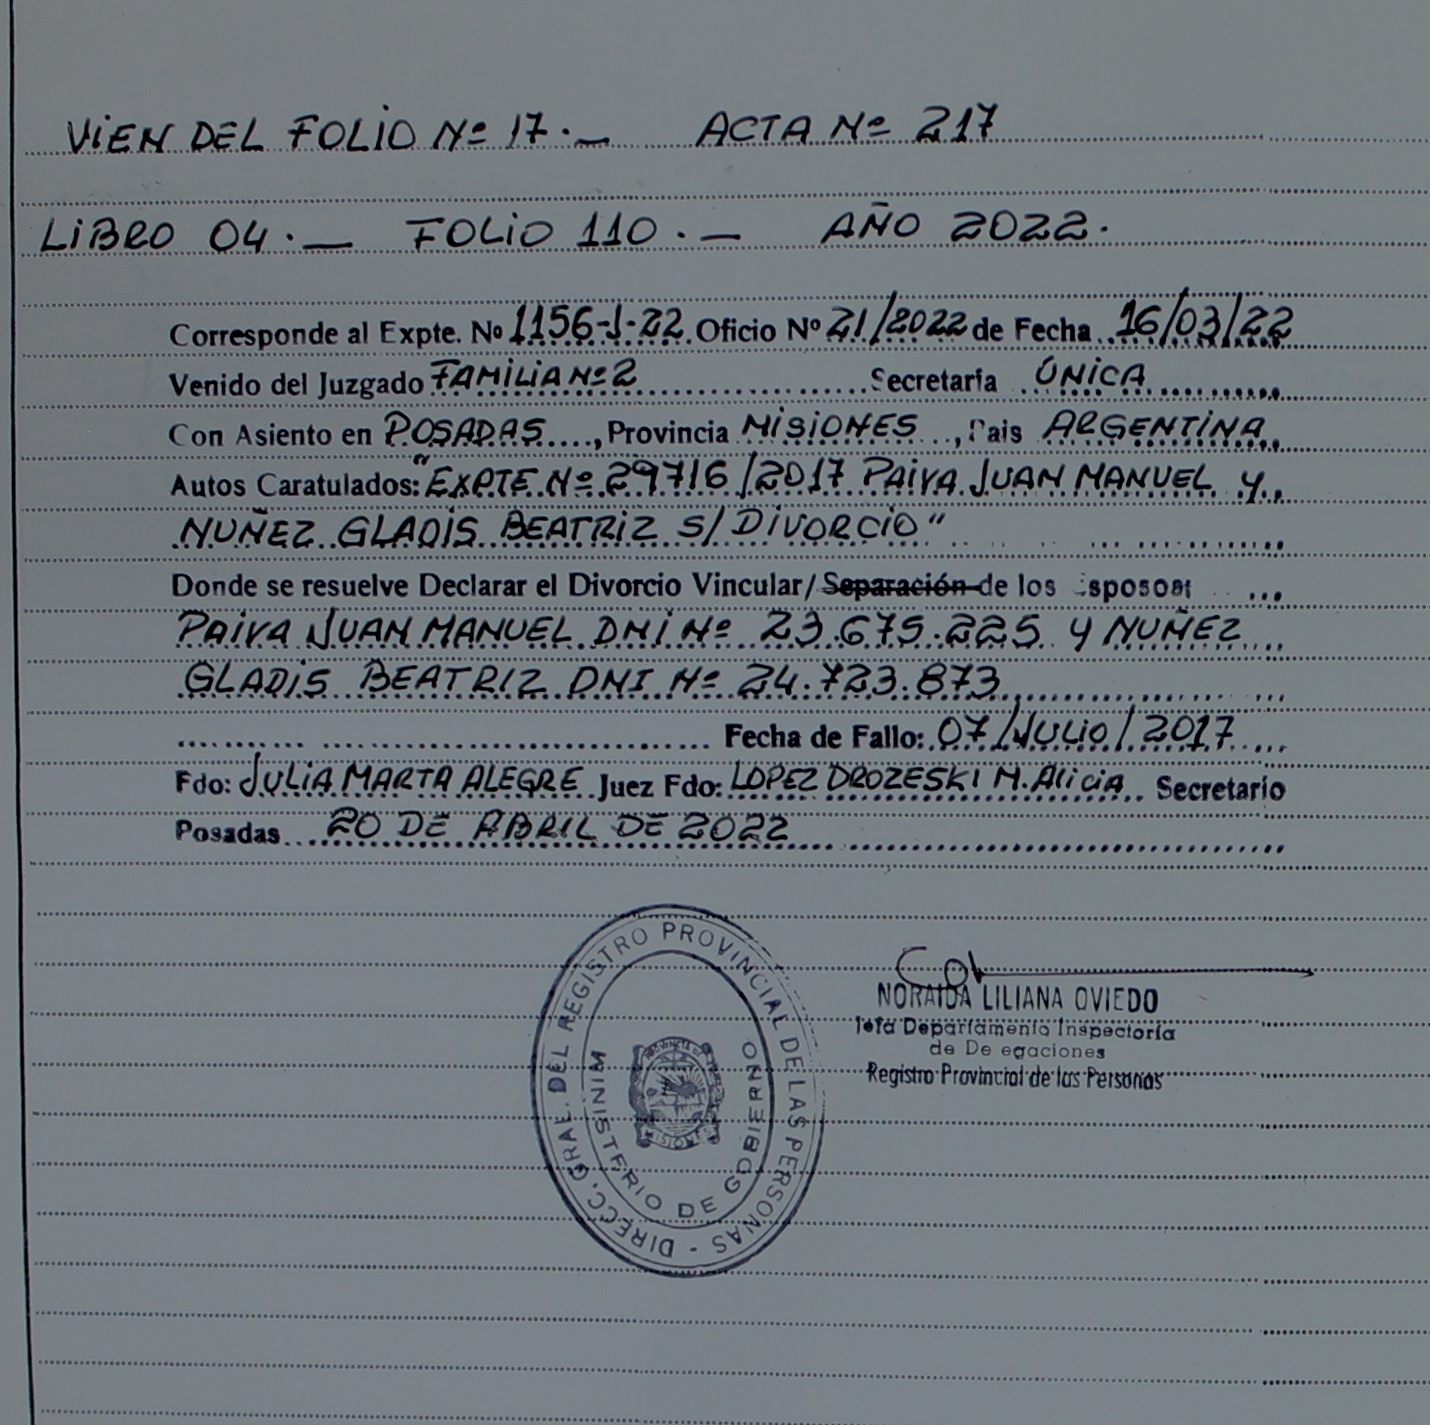 ViEN DEL FOLiO Nº 17.— ACTA Nº 217
LiBRO 04.— FOLiO 110.— AÑO 2022.
Corresponde al Expte. Nº 1156-J-22 Oficio Nº 21/2022 de Fecha 16/03/22
Venido del Juzgado FAMiLiA Nº 2 Secretaría ÚNiCA
Con Asiento en POSADAS, Provincia MiSiONES, Pais ARGENTiNA
Autos Caratulados: "EXPTE Nº 29716/2017 PAiVA JUAN MANUEL y
NUÑEZ GLADiS BEATRiZ S/ DiVORCiO"
Donde se resuelve Declarar el Divorcio Vincular/Separación de los Esposos
PAiVA JUAN MANUEL DNi Nº 23.675.225 y NUÑEZ
GLADiS BEATRIZ DNI Nº 24.723.873
Fecha de Fallo: 07/JULiO/2017
Fdo: JULiA MARTA ALEGRE Juez Fdo: LOPEZ DROZESKI M. AliciA Secretario
Posadas 20 DE ABRIL DE 2022
DIRECC. GRAL. DEL REGISTRO PROVINCIAL DE LAS PERSONAS -
MINISTERIO DE GOBIERNO
PROVINCIA DE
MISIONES
NORAIDA LILIANA OVIEDO
Jefa Departamento Inspectoría
de De egaciones
Registro Provincial de las Personas